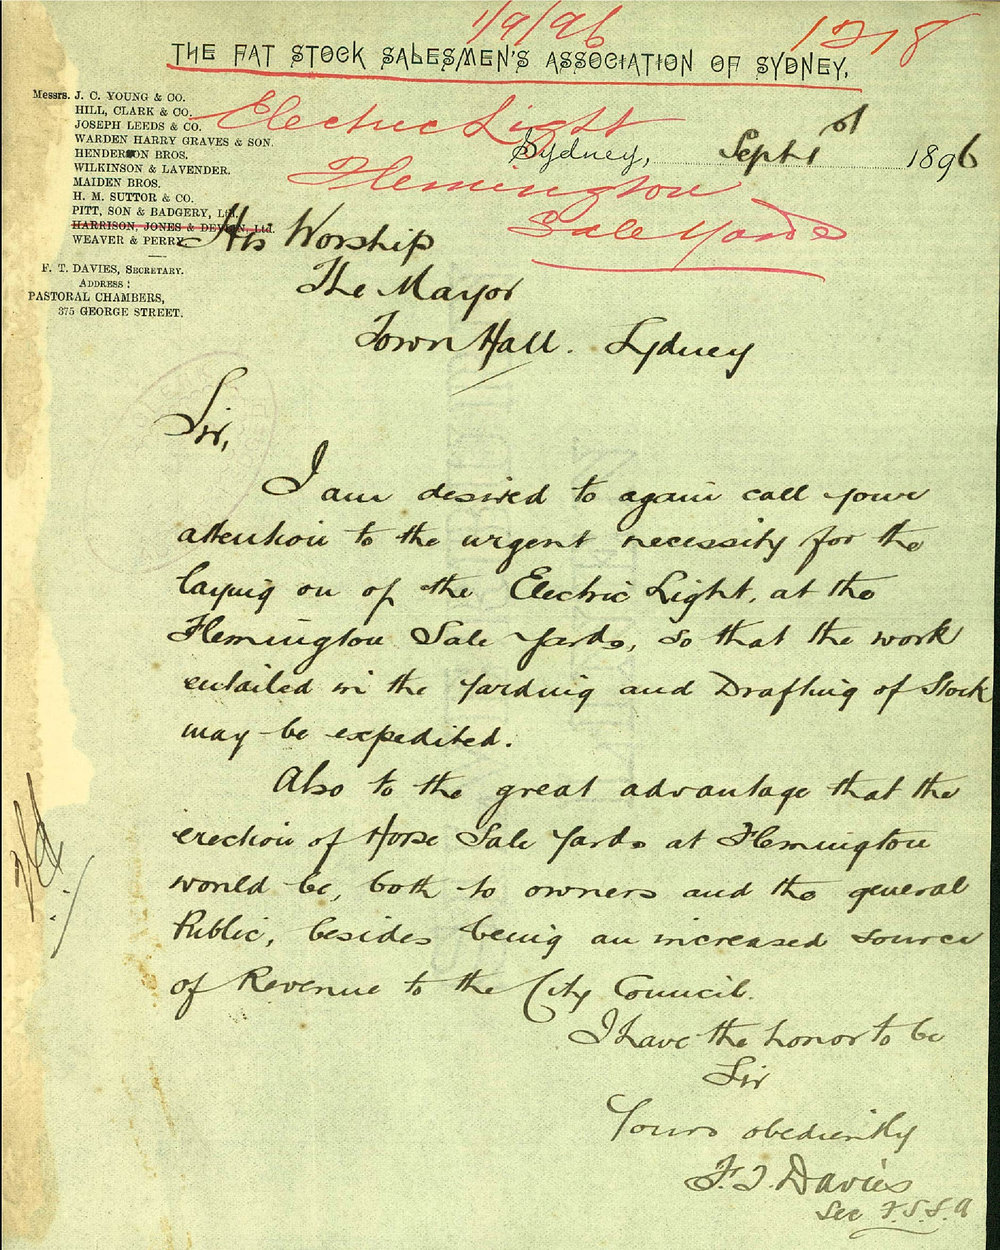 1/9/96 1218
THE FAT STOCK SALESMEN'S ASSOCIATION OF SYDNEY,
Messrs. J. C. YOUNG & CO.
HILL, CLARK & CO.
JOSEPH LEEDS & CO.
WARDEN HARRY GRAVES & SON.
HENDERSON BROS.
WILKINSON & LAVENDER.
MAIDEN BROS.
H. M. SUTTOR & CO.
PITT, SON & BADGERY, Ltd.
HARRISON, JONES & DEVLIN, Ltd.
WEAVER & PERRY
F. T. DAVIES, SECRETARY.
ADDRESS:
PASTORAL CHAMBERS,
375 GEORGE STREET.
Electric Light
Flemington
Sale Yards
Sydney, Sept 1st 1896
His Worship
The Mayor
Town Hall. Sydney
Sir,
I am desired to again call your
attention to the urgent necessity for the
laying on of the Electric Light, at the
Flemington Sale Yards, so that the work
entailed in the Yarding and Drafting of Stock
may be expedited.
Also to the great advantage that the
erection of Horse Sale Yards at Flemington
would be, both to owners and the general
Public, besides being an increased source
of Revenue to the City Council.
I have the honor to be
Sir
Yours obediently
F. T. Davies
Sec F.S.S.A